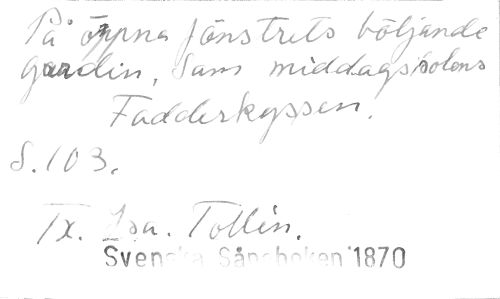 På öppna fönstrets böljande
gardin, som middagssolens
Fadderkyssen.
S. 103.
Tx. Isa. Tollin.
Svenska Sångboken 1870